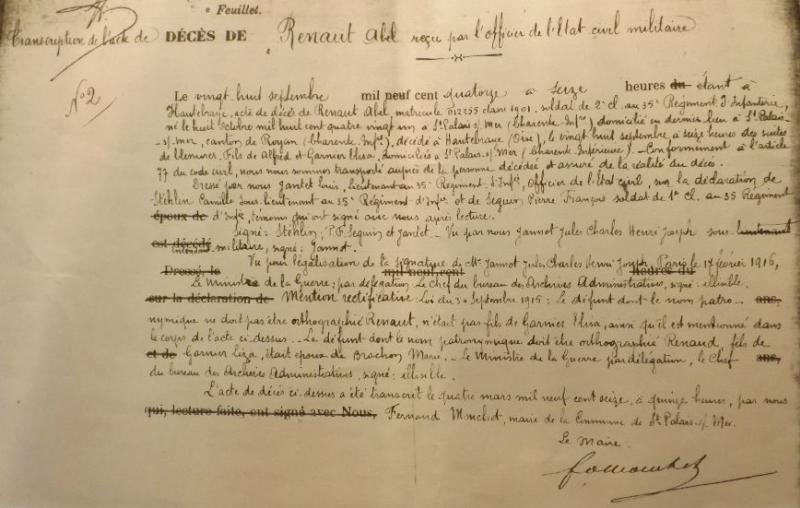 e Feuillet.
Transcription de l'acte de DÉCÈS DE Renaut Abel reçu par l'officier de l'Etat civil militaire
No 2
Le vingt-huit septembre mil neuf cent quatorze à seize heures du étant à
Hautebraye, acte de décès de Renaut Abel, matricule 012255 classe 1901, soldat de 2e cl. au 35e Régiment d'Infanterie,
né le huit Octobre mil huit cent quatre vingt un à St Palais s/ mer (Charente Infre) domicilié en dernier lieu à St Palais-
s/-mer, canton de Royan (Charente Infre), décédé à Hautebraye (Oise), le vingt huit septembre à seize heures des suites
de blessures. Fils de Alfred et Garnier Elisa, domiciliés à St Palais s/ Mer (Charente Inférieure). - Conformément à l'article
77 du code civil, nous nous sommes transporté auprès de la personne décédée et assuré de la réalité du décès.
Dressé par nous Jantet Louis, Lieutenant au 35e Régiment d'Infie, Officier de l'Etat civil, sur la déclaration de
Stéhlin Camille Sous-lieutenant au 35e Régiment d'Infie et de Seguin Pierre François soldat de 1e Cl. au 35 Régiment
époux de d'Infie, témoins qui ont signé avec nous après lecture.
Signé: Stéhlin; P. F. Seguin et Jantet. - Vu par nous Jannot Jules Charles Henri Joseph sous-lieutenant
est décédé intendant militaire, signé: Jannot.
Vu pour légalisation de la signature de Mr Jannot Jules Charles Henri Joseph, Paris le 17 février 1916,
Dressé, le mil neuf cent heures du
Le Ministre de la Guerre; par délégation, Le chef du bureau des Archives Administratives, signé: illisible.
sur la déclaration de Mention rectificative Loi du 30 Septembre 1915: Le défunt dont le nom patro- ans,
nymique ne doit pas être orthographié Renaut, n'était pas fils de Garnier Elisa, ainsi qu'il est mentionné dans
le corps de l'acte ci-dessus. - Le défunt dont le nom patronymique doit être orthographié Renaud, fils de
et de Garnier Liza, était époux de Brochon Marie. - Le Ministre de la Guerre par délégation, le Chef ans,
du bureau des Archives Administratives, signé: illisible.
L'acte de décès ci-dessus a été transcrit le quatre mars mil neuf cent seize, à quinze heures, par nous
qui, lecture faite, ont signé avec Nous, Fernand, maire de la Commune de St Palais s/ Mer.
Le Maire.